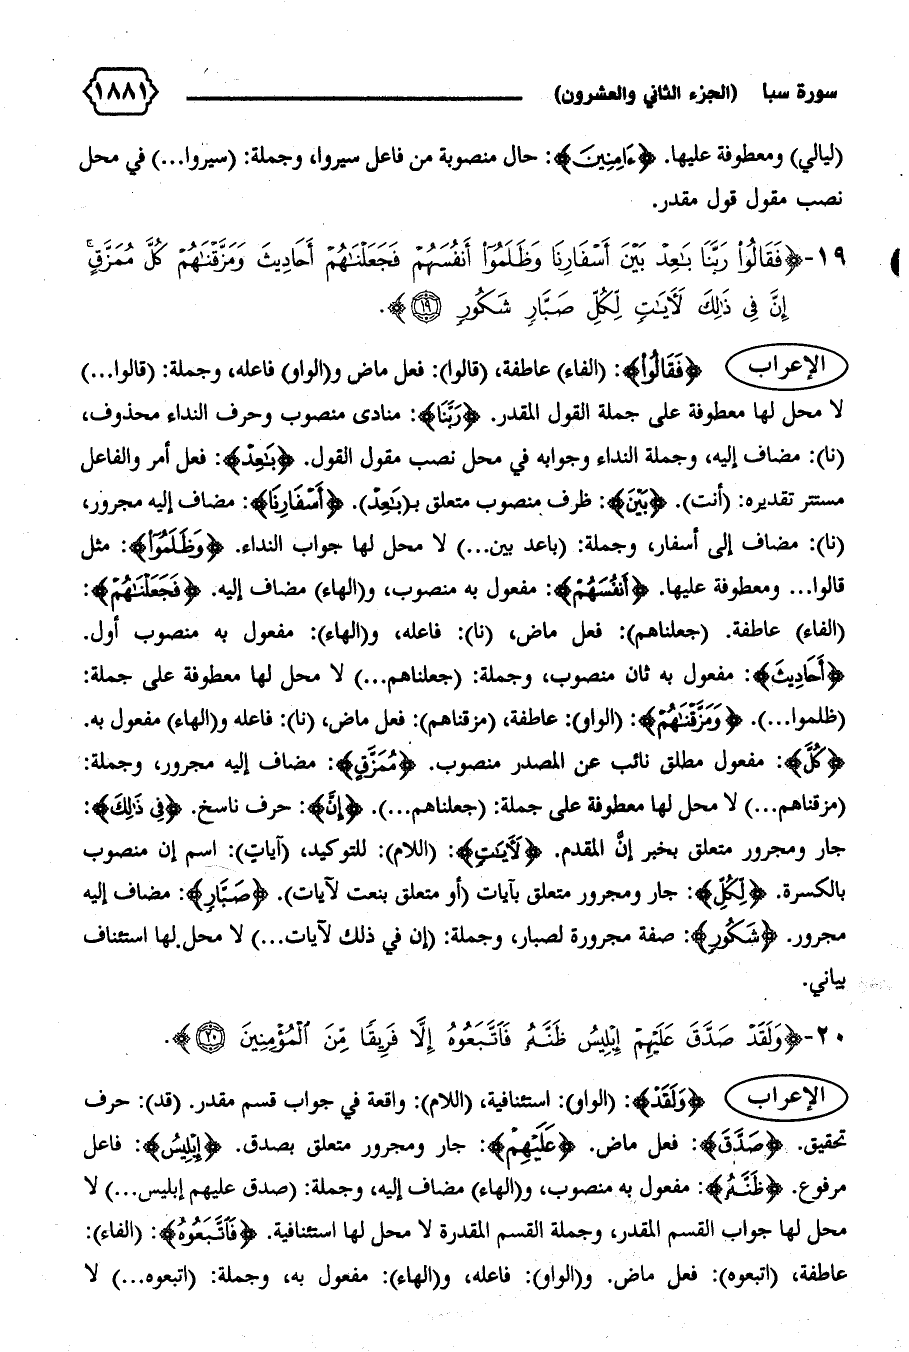 سورة سبا (الجزء الثاني والعشرون) ١٨٨١
(ليالي) ومعطوفة عليها. ﴿ءَامِنِينَ﴾: حال منصوبة من فاعل سيروا، وجملة: (سيروا...) في محل
نصب مقول قول مقدر.
١٩-﴿فَقَالُوا۟ رَبَّنَا بَـٰعِدْ بَيْنَ أَسْفَارِنَا وَظَلَمُوٓا۟ أَنفُسَهُمْ فَجَعَلْنَـٰهُمْ أَحَادِيثَ وَمَزَّقْنَـٰهُمْ كُلَّ مُمَزَّقٍ ۚ
إِنَّ فِى ذَٰلِكَ لَـَٔايَـٰتٍ لِّكُلِّ صَبَّارٍ شَكُورٍ ١٩﴾.
الإعراب ﴿فَقَالُوا۟﴾: (الفاء) عاطفة، (قالوا): فعل ماض و(الواو) فاعله، وجملة: (قالوا...)
لا محل لها معطوفة على جملة القول المقدر. ﴿رَبَّنَا﴾: منادى منصوب وحرف النداء محذوف،
(نا): مضاف إليه، وجملة النداء وجوابه في محل نصب مقول القول. ﴿بَـٰعِدْ﴾: فعل أمر والفاعل
مستتر تقديره: (أنت). ﴿بَيْنَ﴾: ظرف منصوب متعلق بـ(بَـٰعِدْ). ﴿أَسْفَارِنَا﴾: مضاف إليه مجرور،
(نا): مضاف إلى أسفار، وجملة: (باعد بين...) لا محل لها جواب النداء. ﴿وَظَلَمُوٓا۟﴾: مثل
قالوا... ومعطوفة عليها. ﴿أَنفُسَهُمْ﴾: مفعول به منصوب، و(الهاء) مضاف إليه. ﴿فَجَعَلْنَـٰهُمْ﴾:
(الفاء) عاطفة. (جعلناهم): فعل ماض، (نا): فاعله، و(الهاء): مفعول به منصوب أول.
﴿أَحَادِيثَ﴾: مفعول به ثان منصوب، وجملة: (جعلناهم...) لا محل لها معطوفة على جملة:
(ظلموا...). ﴿وَمَزَّقْنَـٰهُمْ﴾: (الواو): عاطفة، (مزقناهم): فعل ماض، (نا): فاعله و(الهاء) مفعول به.
﴿كُلَّ﴾: مفعول مطلق نائب عن المصدر منصوب. ﴿مُمَزَّقٍ﴾: مضاف إليه مجرور، وجملة:
(مزقناهم...) لا محل لها معطوفة على جملة: (جعلناهم...). ﴿إِنَّ﴾: حرف ناسخ. ﴿فِى ذَٰلِكَ﴾:
جار ومجرور متعلق بخبر إنَّ المقدم. ﴿لَـَٔايَـٰتٍ﴾: (اللام): للتوكيد، (آياتٍ): اسم إن منصوب
بالكسرة. ﴿لِّكُلِّ﴾: جار ومجرور متعلق بآيات (أو متعلق بنعت لآيات). ﴿صَبَّارٍ﴾: مضاف إليه
مجرور. ﴿شَكُورٍ﴾: صفة مجرورة لصبار، وجملة: (إن في ذلك لآيات...) لا محل لها استئناف
بياني.
٢٠-﴿وَلَقَدْ صَدَّقَ عَلَيْهِمْ إِبْلِيسُ ظَنَّهُۥ فَٱتَّبَعُوهُ إِلَّا فَرِيقًا مِّنَ ٱلْمُؤْمِنِينَ ٢٠﴾.
الإعراب ﴿وَلَقَدْ﴾: (الواو): استئنافية، (اللام): واقعة في جواب قسم مقدر. (قد): حرف
تحقيق. ﴿صَدَّقَ﴾: فعل ماض. ﴿عَلَيْهِمْ﴾: جار ومجرور متعلق بصدق. ﴿إِبْلِيسُ﴾: فاعل
مرفوع. ﴿ظَنَّهُۥ﴾: مفعول به منصوب، و(الهاء) مضاف إليه، وجملة: (صدق عليهم إبليس...) لا
محل لها جواب القسم المقدر، وجملة القسم المقدرة لا محل لها استئنافية. ﴿فَٱتَّبَعُوهُ﴾: (الفاء):
عاطفة، (اتبعوه): فعل ماض. و(الواو): فاعله، و(الهاء): مفعول به، وجملة: (اتبعوه...) لا